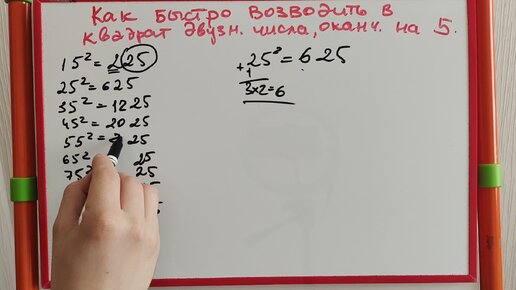 Как быстро возводить в
квадрат двузн. числа, оканч. на 5.
15² = 225
25² = 625
35² = 1225
45² = 2025
55² = 25
65² 25
75² 25
25² = 625
+1
3×2=6